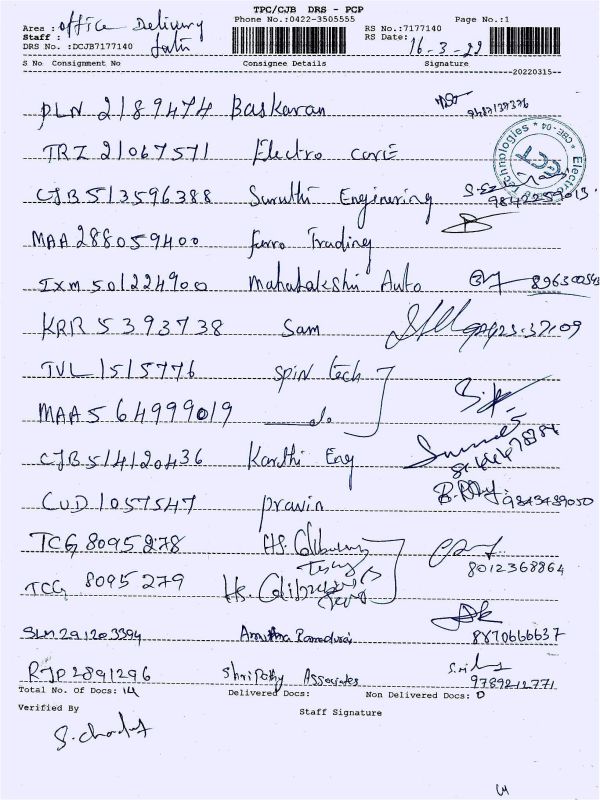 TPC/CJB DRS - PCP
Area : office Delivery Phone No.:0422-3505555 Page No.:1
Staff : RS No.:7177140
DRS No. :DCJB7177140 RS Date: 16-3-22
S No Consignment No Consignee Details Signature
20220315
PLN 2189474 Baskaran 9487139376
TRZ 21067571 Electro care
CJB 513596388 Suruthi Enginering 9842259013
MAA 288059400 ferro Trading
IXM 501224900 Mahalakshi Auto
KRR 5393738 Sam
TVL 1515776 spin tech
MAA 564999019 do
CJB 514120436 Karthi Eng
CUD 1057547 pravin 9843489050
TCG 8095278 HS. 8012368864
TCG 8095279 HS.
SLM 291203394 8870666637
RJP 2891296 Shripathy Associates 9789212771
Total No. of Docs: 14 Delivered Docs: Non Delivered Docs: 0
Verified By Staff Signature